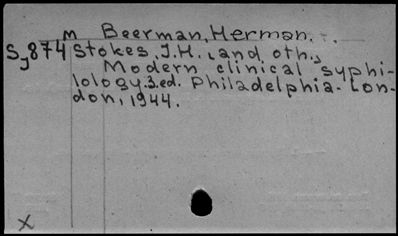 m Beerman, Herman.
Sy874 Stokes, J.H. [and oth.,
Modern clinical syphi-
lology. 3.ed. Philadelphia-Lon-
don, 1944.
X